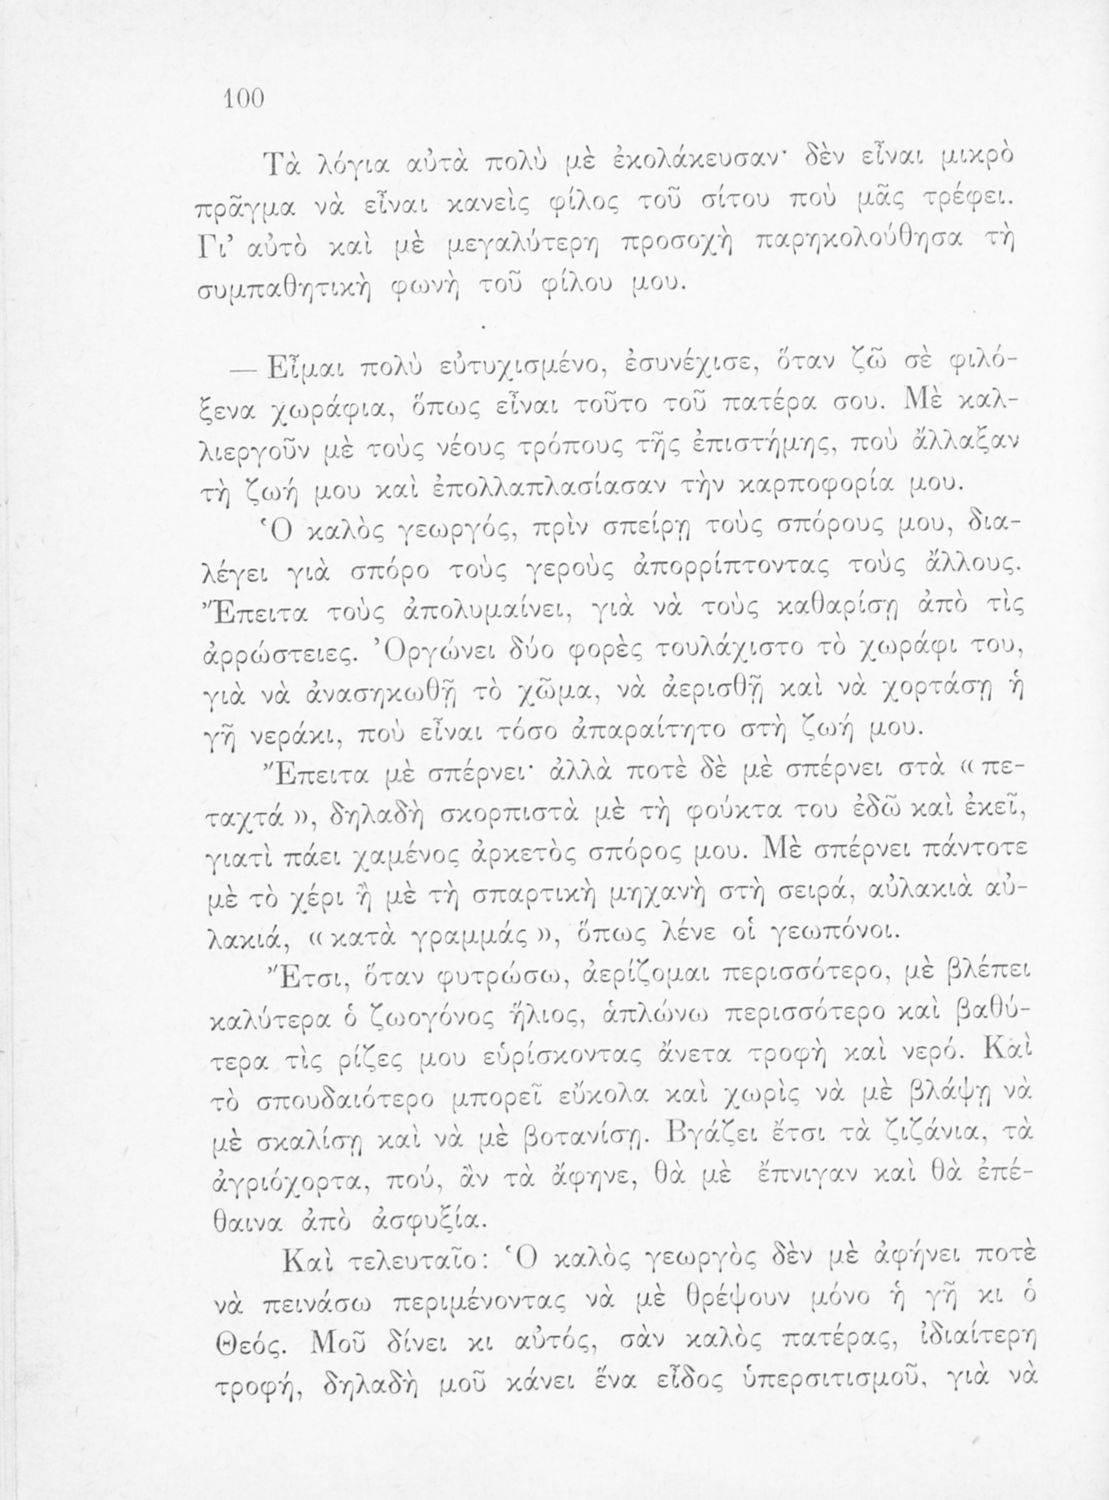 100
Τὰ λόγια αὐτὰ πολὺ μὲ ἐκολάκευσαν· δὲν εἶναι μικρὸ
πρᾶγμα νὰ εἶναι κανεὶς φίλος τοῦ σίτου ποὺ μᾶς τρέφει.
Γι’ αὐτὸ καὶ μὲ μεγαλύτερη προσοχὴ παρηκολούθησα τὴ
συμπαθητικὴ φωνὴ τοῦ φίλου μου.
— Εἶμαι πολὺ εὐτυχισμένο, ἐσυνέχισε, ὅταν ζῶ σὲ φιλό-
ξενα χωράφια, ὅπως εἶναι τοῦτο τοῦ πατέρα σου. Μὲ καλ-
λιεργοῦν μὲ τοὺς νέους τρόπους τῆς ἐπιστήμης, ποὺ ἄλλαξαν
τὴ ζωή μου καὶ ἐπολλαπλασίασαν τὴν καρποφορία μου.
Ὁ καλὸς γεωργός, πρὶν σπείρῃ τοὺς σπόρους μου, δια-
λέγει γιὰ σπόρο τοὺς γεροὺς ἀπορρίπτοντας τοὺς ἄλλους.
Ἔπειτα τοὺς ἀπολυμαίνει, γιὰ νὰ τοὺς καθαρίσῃ ἀπὸ τὶς
ἀρρώστειες. Ὀργώνει δύο φορὲς τουλάχιστο τὸ χωράφι του,
γιὰ νὰ ἀνασηκωθῇ τὸ χῶμα, νὰ ἀερισθῇ καὶ νὰ χορτάσῃ ἡ
γῆ νεράκι, ποὺ εἶναι τόσο ἀπαραίτητο στὴ ζωή μου.
Ἔπειτα μὲ σπέρνει· ἀλλὰ ποτὲ δὲ μὲ σπέρνει στὰ « πε-
ταχτά », δηλαδὴ σκορπιστὰ μὲ τὴ φούκτα του ἐδῶ καὶ ἐκεῖ,
γιατὶ πάει χαμένος ἀρκετὸς σπόρος μου. Μὲ σπέρνει πάντοτε
μὲ τὸ χέρι ἢ μὲ τὴ σπαρτικὴ μηχανὴ στὴ σειρά, αὐλακιὰ αὐ-
λακιά, « κατὰ γραμμάς », ὅπως λένε οἱ γεωπόνοι.
Ἔτσι, ὅταν φυτρώσω, ἀερίζομαι περισσότερο, μὲ βλέπει
καλύτερα ὁ ζωογόνος ἥλιος, ἁπλώνω περισσότερο καὶ βαθύ-
τερα τὶς ρίζες μου εὑρίσκοντας ἄνετα τροφὴ καὶ νερό. Καὶ
τὸ σπουδαιότερο μπορεῖ εὔκολα καὶ χωρὶς νὰ μὲ βλάψῃ νὰ
μὲ σκαλίσῃ καὶ νὰ μὲ βοτανίσῃ. Βγάζει ἔτσι τὰ ζιζάνια, τὰ
ἀγριόχορτα, πού, ἂν τὰ ἄφηνε, θὰ μὲ ἔπνιγαν καὶ θὰ ἐπέ-
θαινα ἀπὸ ἀσφυξία.
Καὶ τελευταῖο: Ὁ καλὸς γεωργὸς δὲν μὲ ἀφήνει ποτὲ
νὰ πεινάσω περιμένοντας νὰ μὲ θρέψουν μόνο ἡ γῆ κι ὁ
Θεός. Μοῦ δίνει κι αὐτός, σὰν καλὸς πατέρας, ἰδιαίτερη
τροφή, δηλαδὴ μοῦ κάνει ἕνα εἶδος ὑπερσιτισμοῦ, γιὰ νὰ